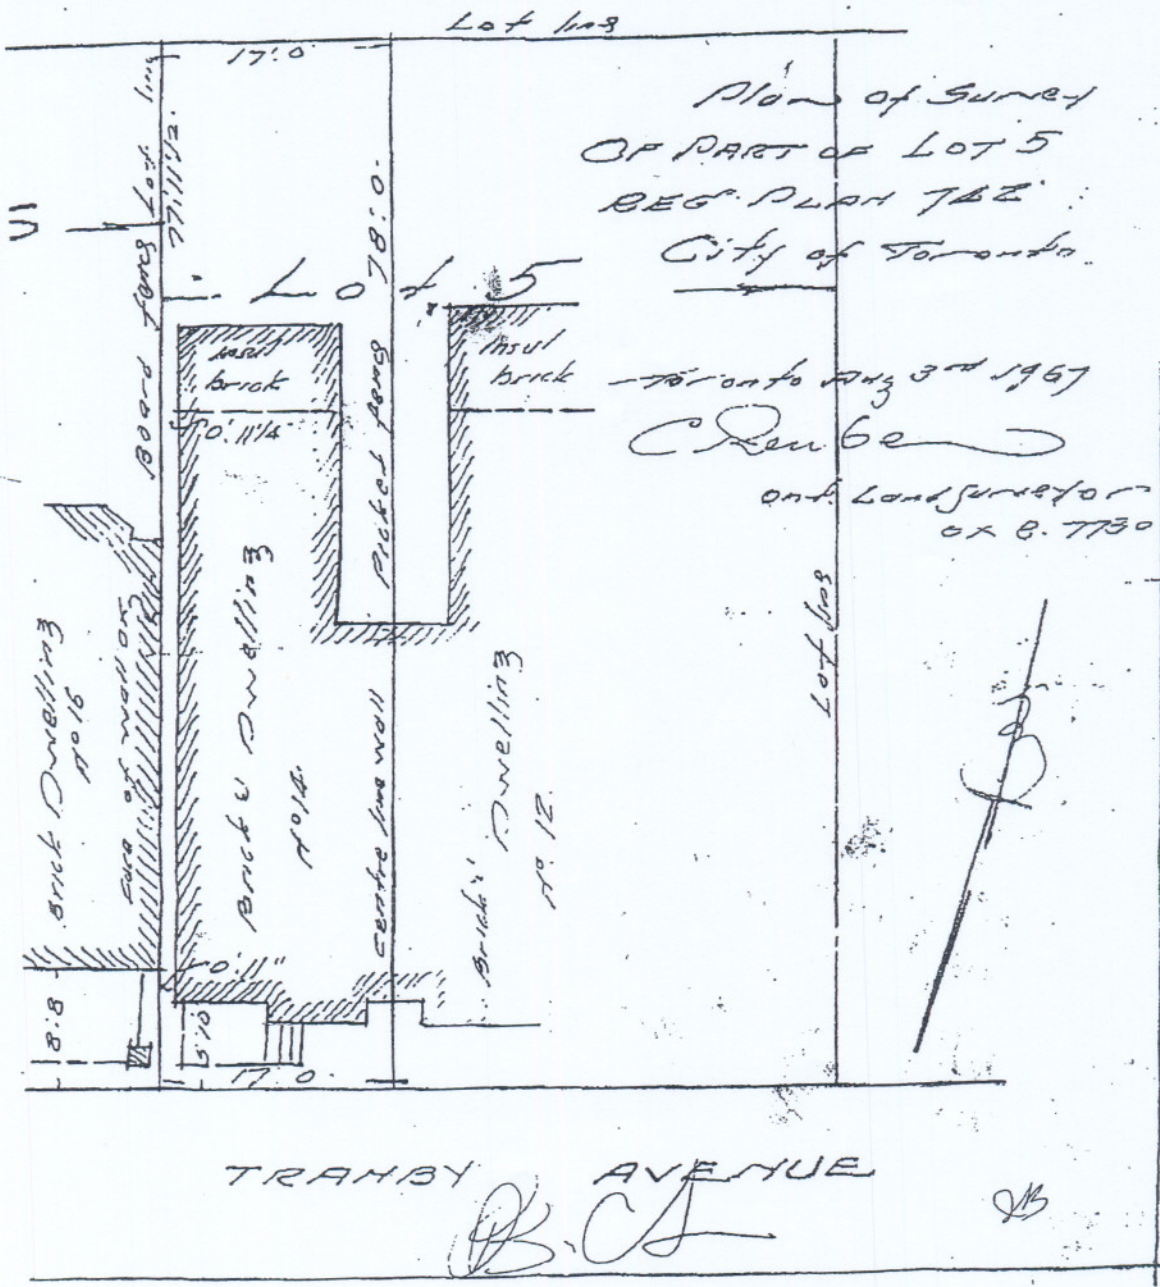 Lot line
17'.0
Plan of Survey
OF PART OF LOT 5
REG. PLAN 762
City of Toronto
Toronto Aug 3rd 1967
Ont. Land Surveyor
Lot line
77'.11 1/2
Board fence
Lot 5
78'.0
Picket fence
Insul
brick
Insul
brick
0'.11 1/4
Brick Dwelling
No 16
Face of wall on
Brick Dwelling
No 14
centre line wall
Brick Dwelling
No 12
Lot line
0'.11"
8'.8
5'.10
17'.0
TRANBY AVENUE